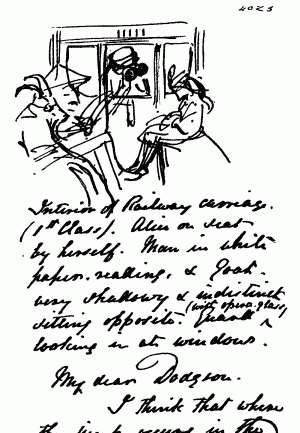 4025
Interior of Railway carriage.
(1st Class). Alice on seat
by herself. Man in white
paper, reading, & Goat
very shadowy & indistinct
sitting opposite. Guard (with opera glass)
looking in at window.
My dear Dodgson.
I think that when
the jump occurs in the